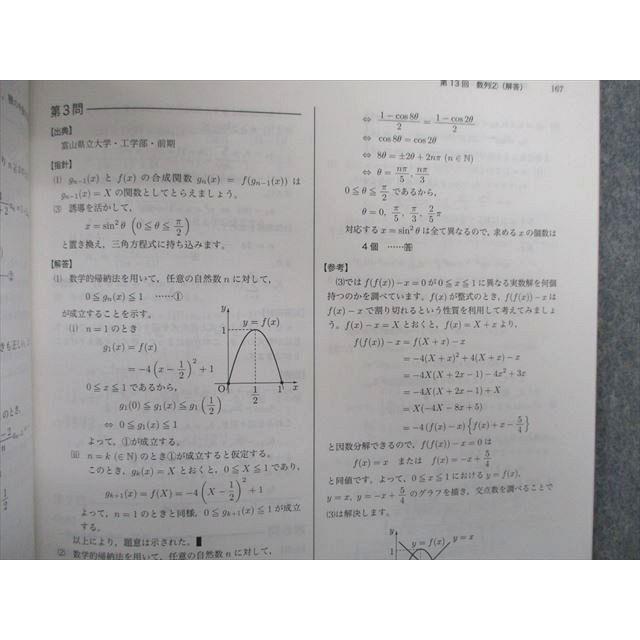 第13回 数列② (解答) 167
第3問
【出典】
富山県立大学・工学部・前期
【指針】
(1) gₙ(x) と f(x) の合成関数 gₙ(x) = f(gₙ₋₁(x)) は
gₙ₋₁(x) = X の関数としてとらえましょう。
(3) 誘導を活かして,
x = sin²θ (0 ≦ θ ≦ π/2)
と置き換え, 三角方程式に持ち込みます。
【解答】
(1) 数学的帰納法を用いて, 任意の自然数 n に対して,
0 ≦ gₙ(x) ≦ 1 ……①
が成立することを示す。
(i) n = 1 のとき
g₁(x) = f(x)
= −4(x − 1/2)² + 1
0 ≦ x ≦ 1 であるから,
g₁(0) ≦ g₁(x) ≦ g₁(1/2)
⇔ 0 ≦ g₁(x) ≦ 1
よって, ①が成立する。
y
y = f(x)
1
O 1/2 1 x
(ii) n = k (∈ N) のとき①が成立すると仮定する。
このとき, gₖ(x) = X とおくと, 0 ≦ X ≦ 1 であり,
gₖ₊₁(x) = f(X) = −4(X − 1/2)² + 1
よって, n = 1 のときと同様, 0 ≦ gₖ₊₁(x) ≦ 1 が成立
する。
以上により, 題意は示された。■
(2) 数学的帰納法を用いて, 任意の自然数 n に対して,
⇔ (1 − cos 8θ)/2 = (1 − cos 2θ)/2
⇔ cos 8θ = cos 2θ
⇔ 8θ = ±2θ + 2nπ (n ∈ N)
⇔ θ = nπ/5, nπ/3
0 ≦ θ ≦ π/2 であるから,
θ = 0, π/5, π/3, 2/5 π
対応する x = sin²θ は全て異なるので, 求める x の個数は
4個 ……答
【参考】
(3)では f(f(x)) − x = 0 が 0 ≦ x ≦ 1 に異なる実数解を何個
持つのかを調べています。f(x) が整式のとき, f(f(x)) − x は
f(x) − x で割り切れるという性質を利用して考えてみましょ
う。f(x) − x = X とおくと, f(x) = X + x より,
f(f(x)) − x = f(X + x) − x
= −4(X + x)² + 4(X + x) − x
= −4X(X + 2x − 1) − 4x² + 3x
= −4X(X + 2x − 1) + X
= X(−4X − 8x + 5)
= −4(f(x) − x){f(x) + x − 5/4}
と因数分解できるので, f(f(x)) − x = 0 は
f(x) = x または f(x) = −x + 5/4
と同値です。よって, 0 ≦ x ≦ 1 における y = f(x),
y = x, y = −x + 5/4 のグラフを描き, 交点数を調べることで
(3)は解決します。
y
y = f(x) y = x
1